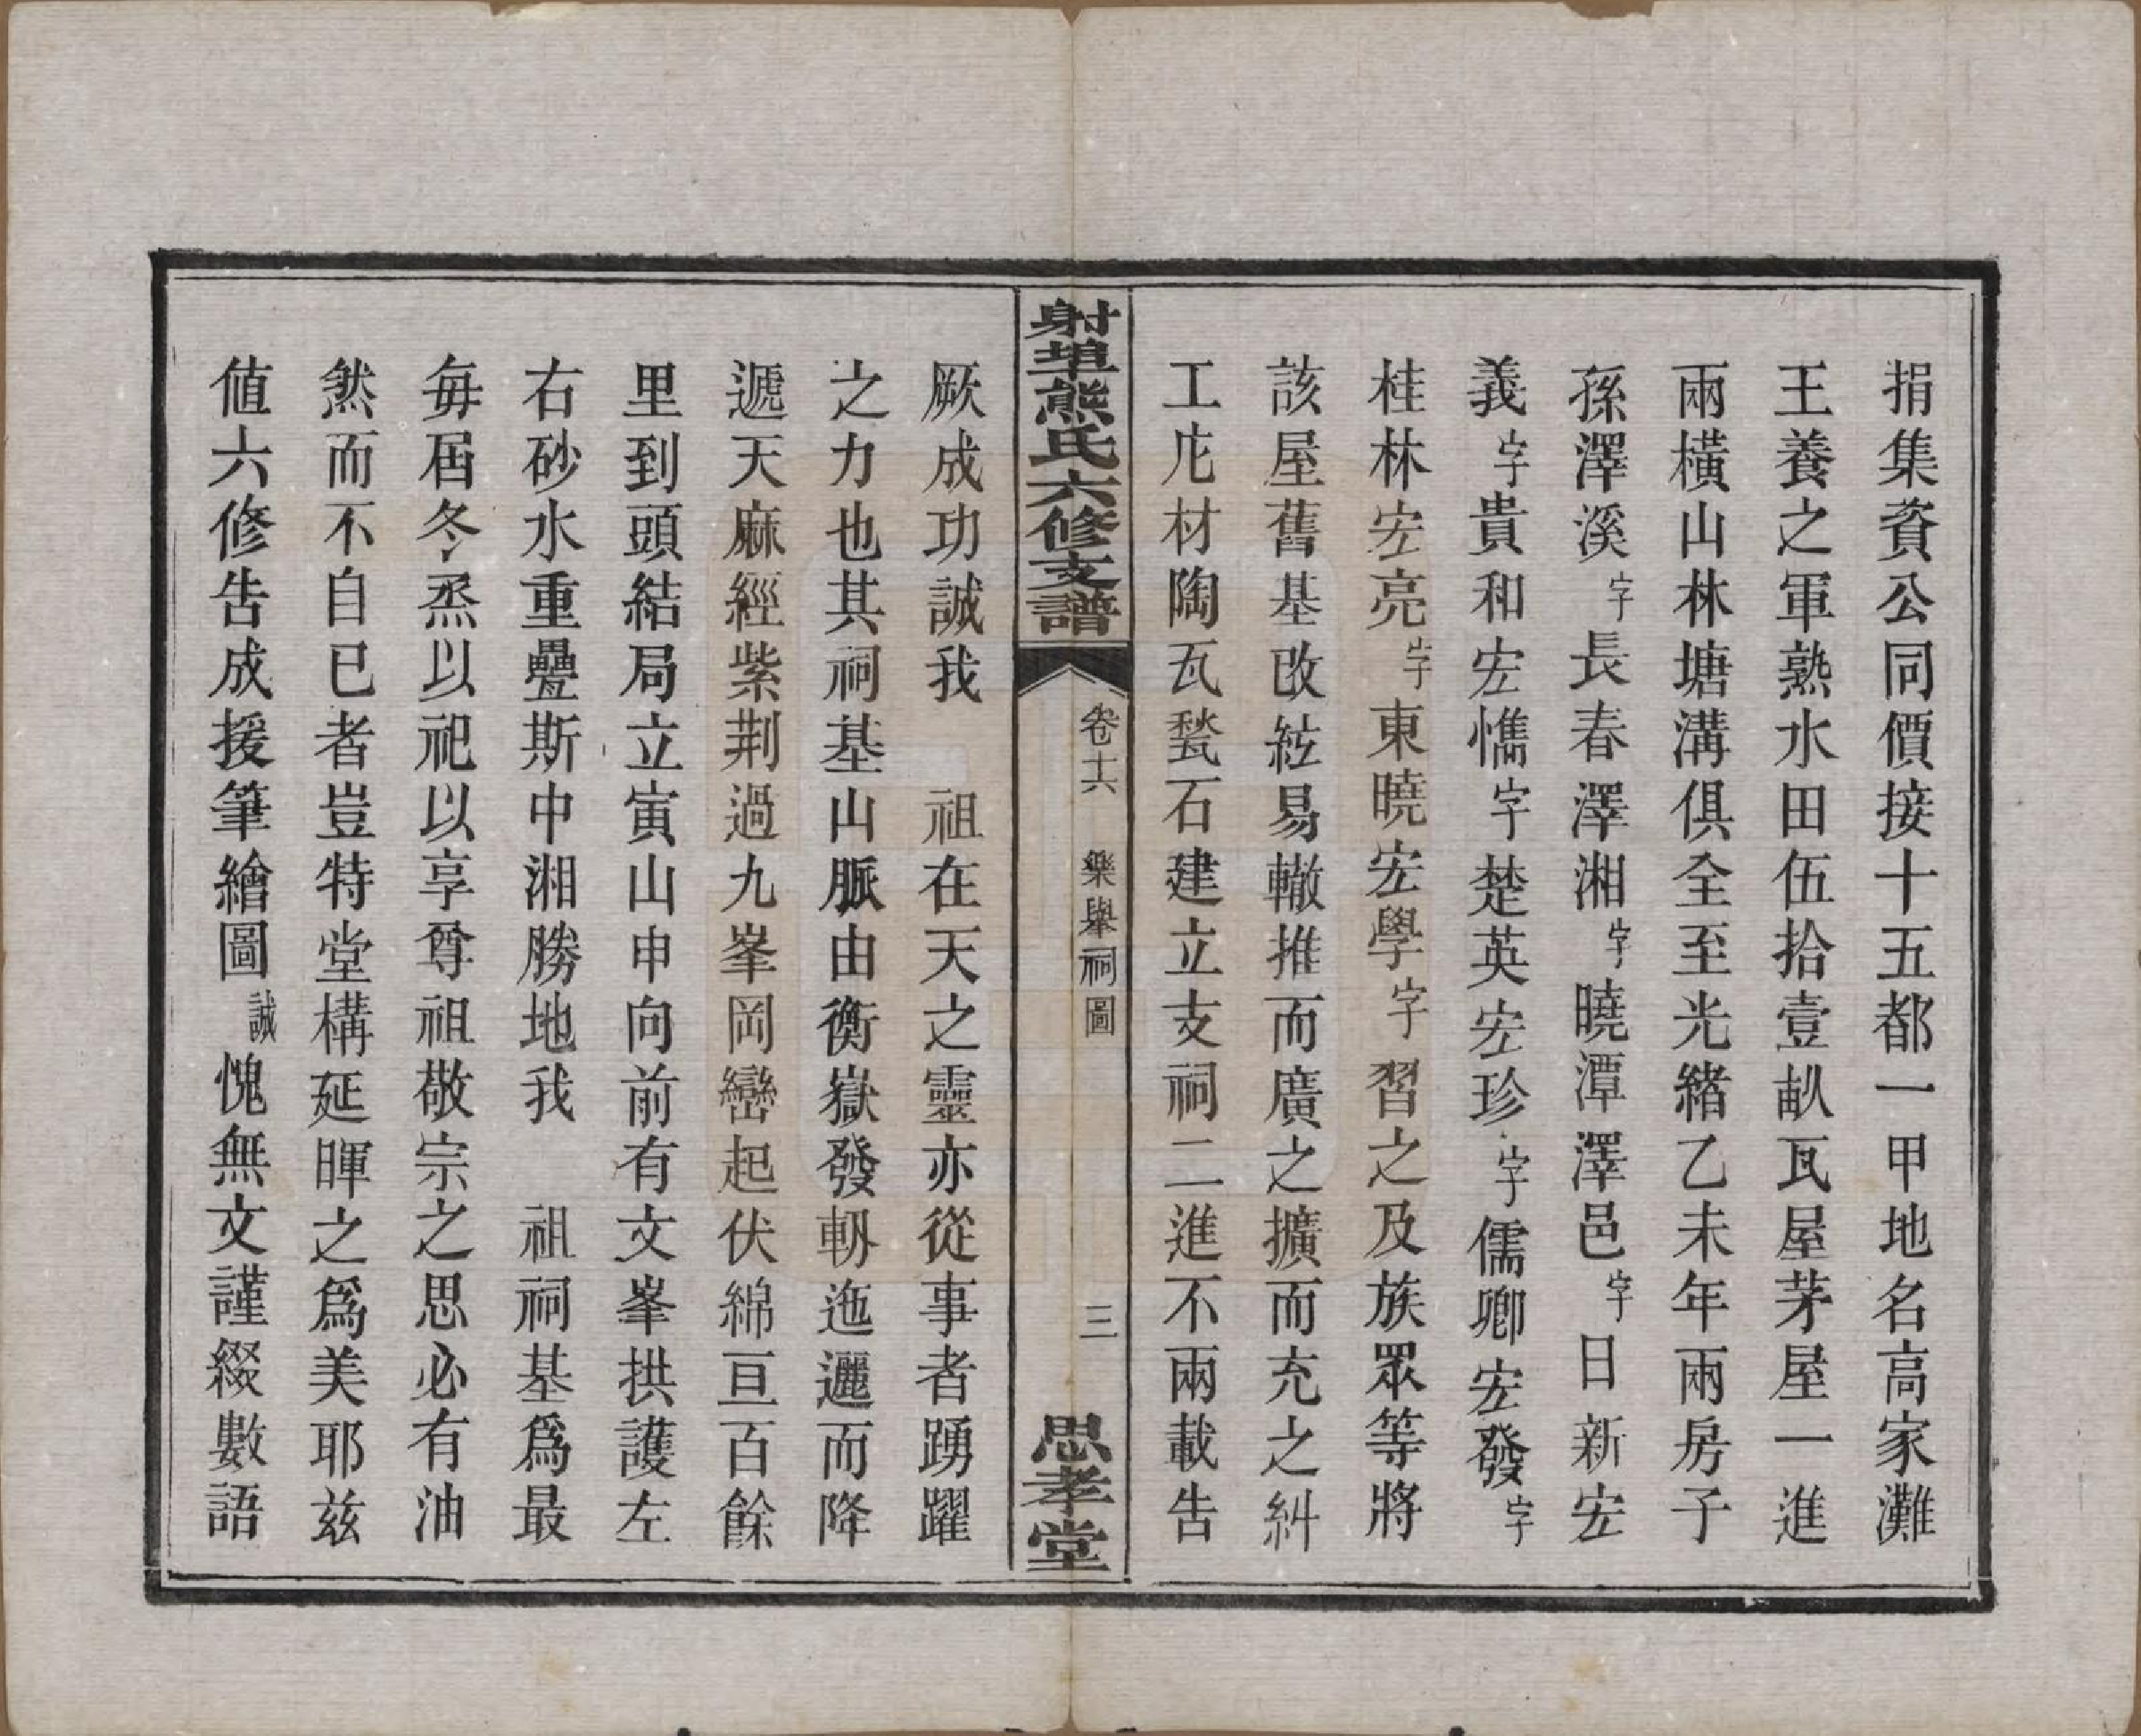 捐集資公同價接十五都一甲地名高家灘
王養之軍熟水田伍拾壹畝瓦屋茅屋一進
兩橫山林塘溝俱全至光緒乙未年兩房子
孫澤溪字長春澤湘字曉潭澤邑字日新宏
義字貴和宏㦎字楚英宏珍字儒卿宏發字
桂林宏亮字東曉宏學字習之及族眾等將
該屋舊基改絃易轍推而廣之擴而充之糾
工庀材陶瓦甃石建立支祠二進不兩載告
射埠熊氏六修支譜
卷十六
樂舉祠圖
三
思孝堂
厥成功誠我 祖在天之靈亦從事者踴躍
之力也其祠基山脈由衡嶽發軔迤邐而降
遞天麻經紫荆過九峯岡巒起伏綿亘百餘
里到頭結局立寅山申向前有文峯拱護左
右砂水重疊斯中湘勝地我 祖祠基爲最
每屆冬烝以祀以享尊祖敬宗之思必有油
然而不自已者豈特堂構延暉之爲美耶兹
値六修告成援筆繪圖誠愧無文謹綴數語